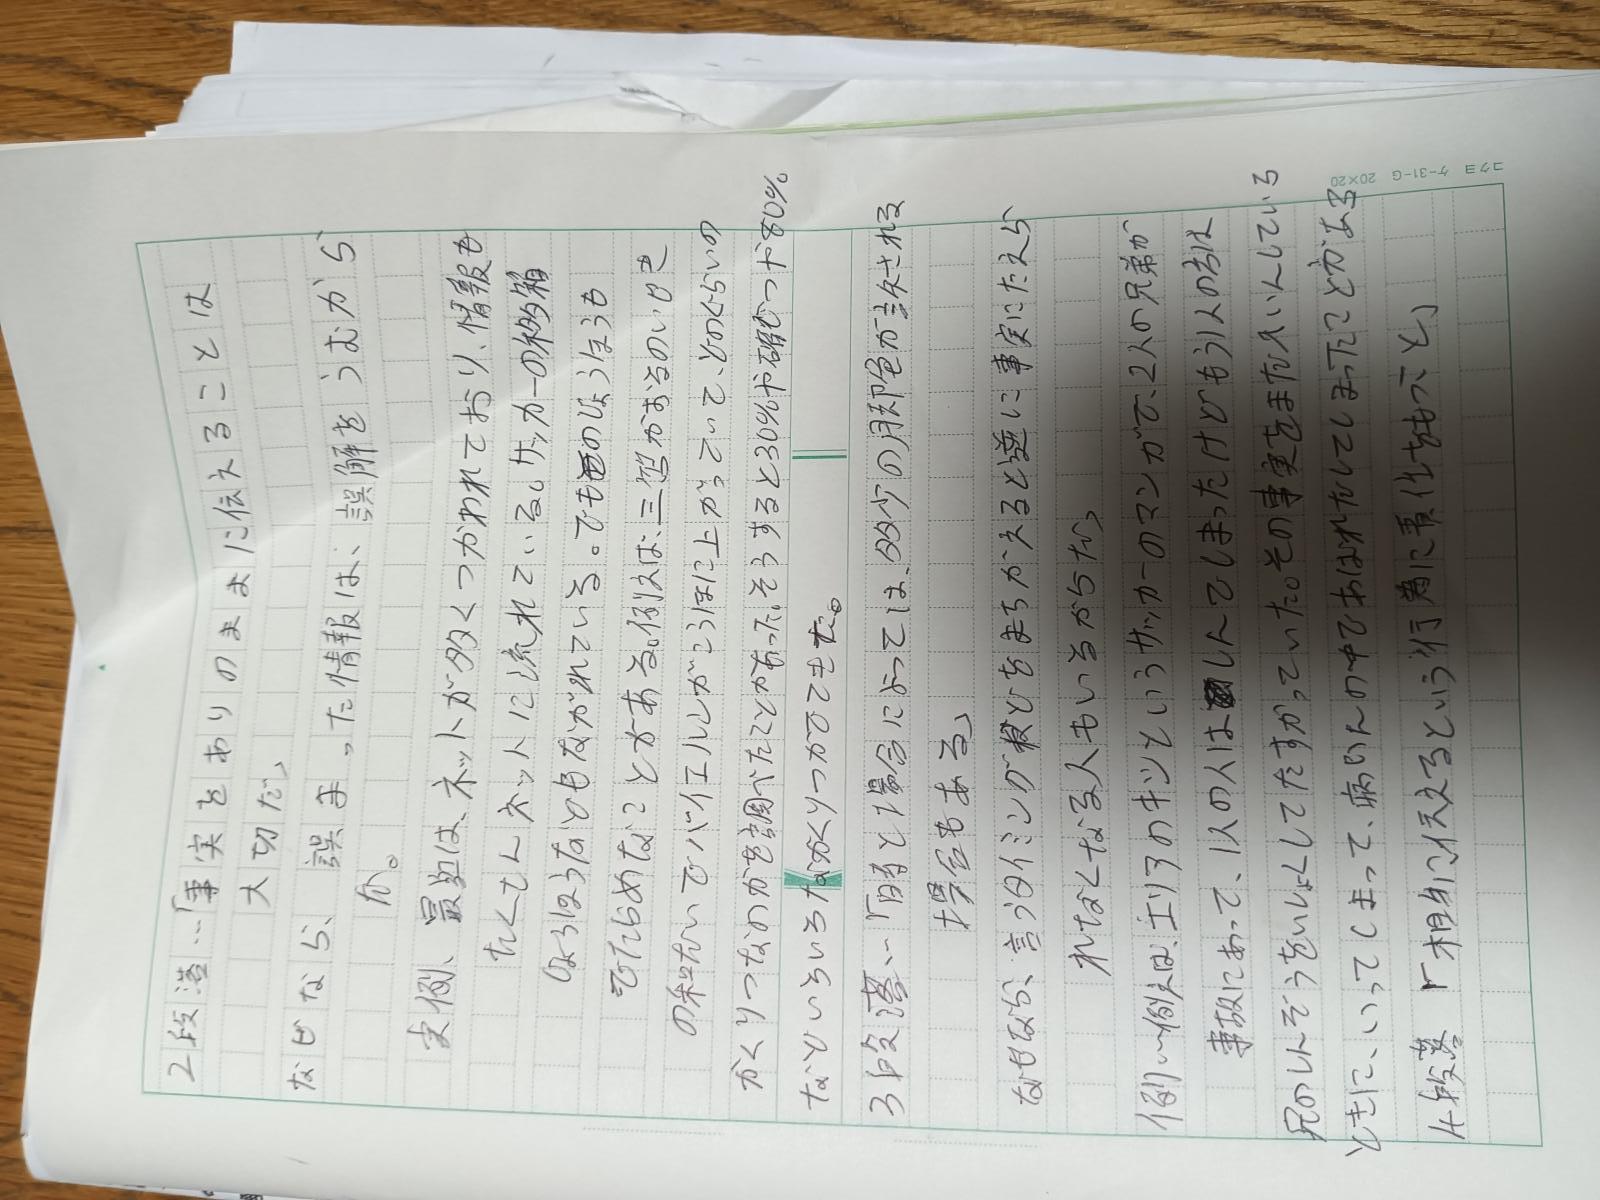 2段落…「事実をありのままに伝えることは
大切だ」
なぜなら、誤まった情報は、誤解をうむから
だ。
実例、最近は、ネットが多くつかわれており、情報も
たくさんネットに流れている。サッカーの移籍
じょうほうなどもながれている。でものじょうほうも
でたらめなことがある。例えば、三笘がおるのいせき
の話だいでバイエルンがこうほに上がっていて、どのくらいの
かくりつなのかを調べたことがあった。そうすると30%や確じつや80%
などいろいろなかくりつがでてきた。
3段落…「白ると場合によっては、多少の脚色が許される
場合もある」
なぜなら、言うタイミングなどをまちがえると逆に事実にたえら
れなくなる人もいるからだ。
例…例えば、エリアのキシというサッカーのマンガで、2人の兄弟が
事故にあって、1人の人はしんでしまったけどもう1人の弟は
兄のしんぞうをいしょくしてたすかっていた。その事実をまだれいんしている
ときに、いってしまって、病いんの中であばれだしてしまったことがある
4段落 「相手に伝えるという行為に責任をもつこと」
コクヨ ケ-31-G 20×20